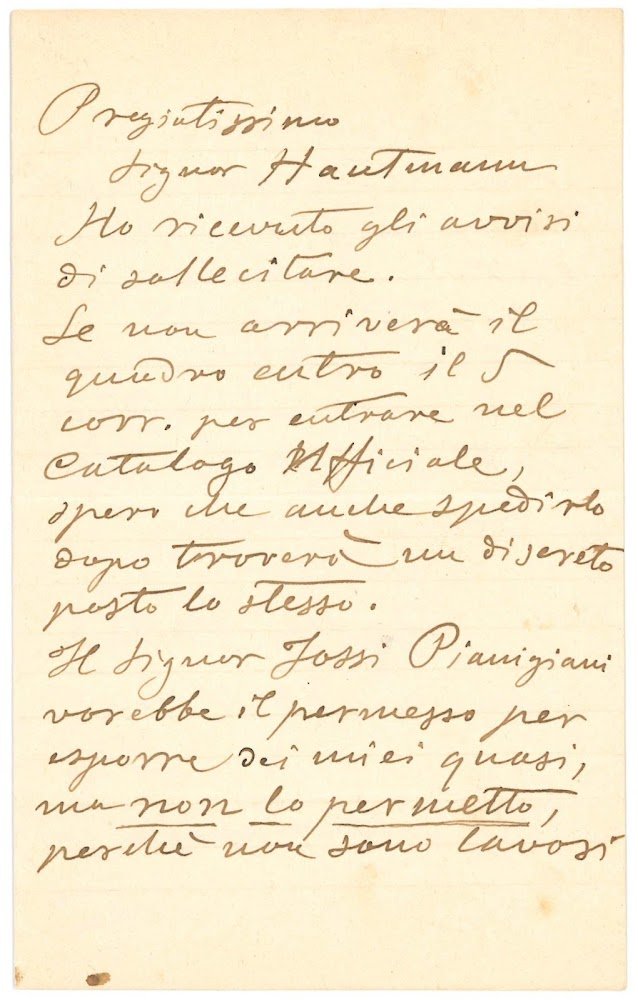 Pregiatissimo
Signor Hautmann
Ho ricevuto gli avvisi
di sollecitare.
Se non arriverà il
quadro entro il 5
corr. per entrare nel
Catalogo Ufficiale,
spero che anche spedirlo
dopo troverà un discreto
posto lo stesso.
Il Signor Jossi Pianigiani
vorebbe il permesso per
esporre dei miei quasi,
ma non lo permetto,
perchè non sono lavori